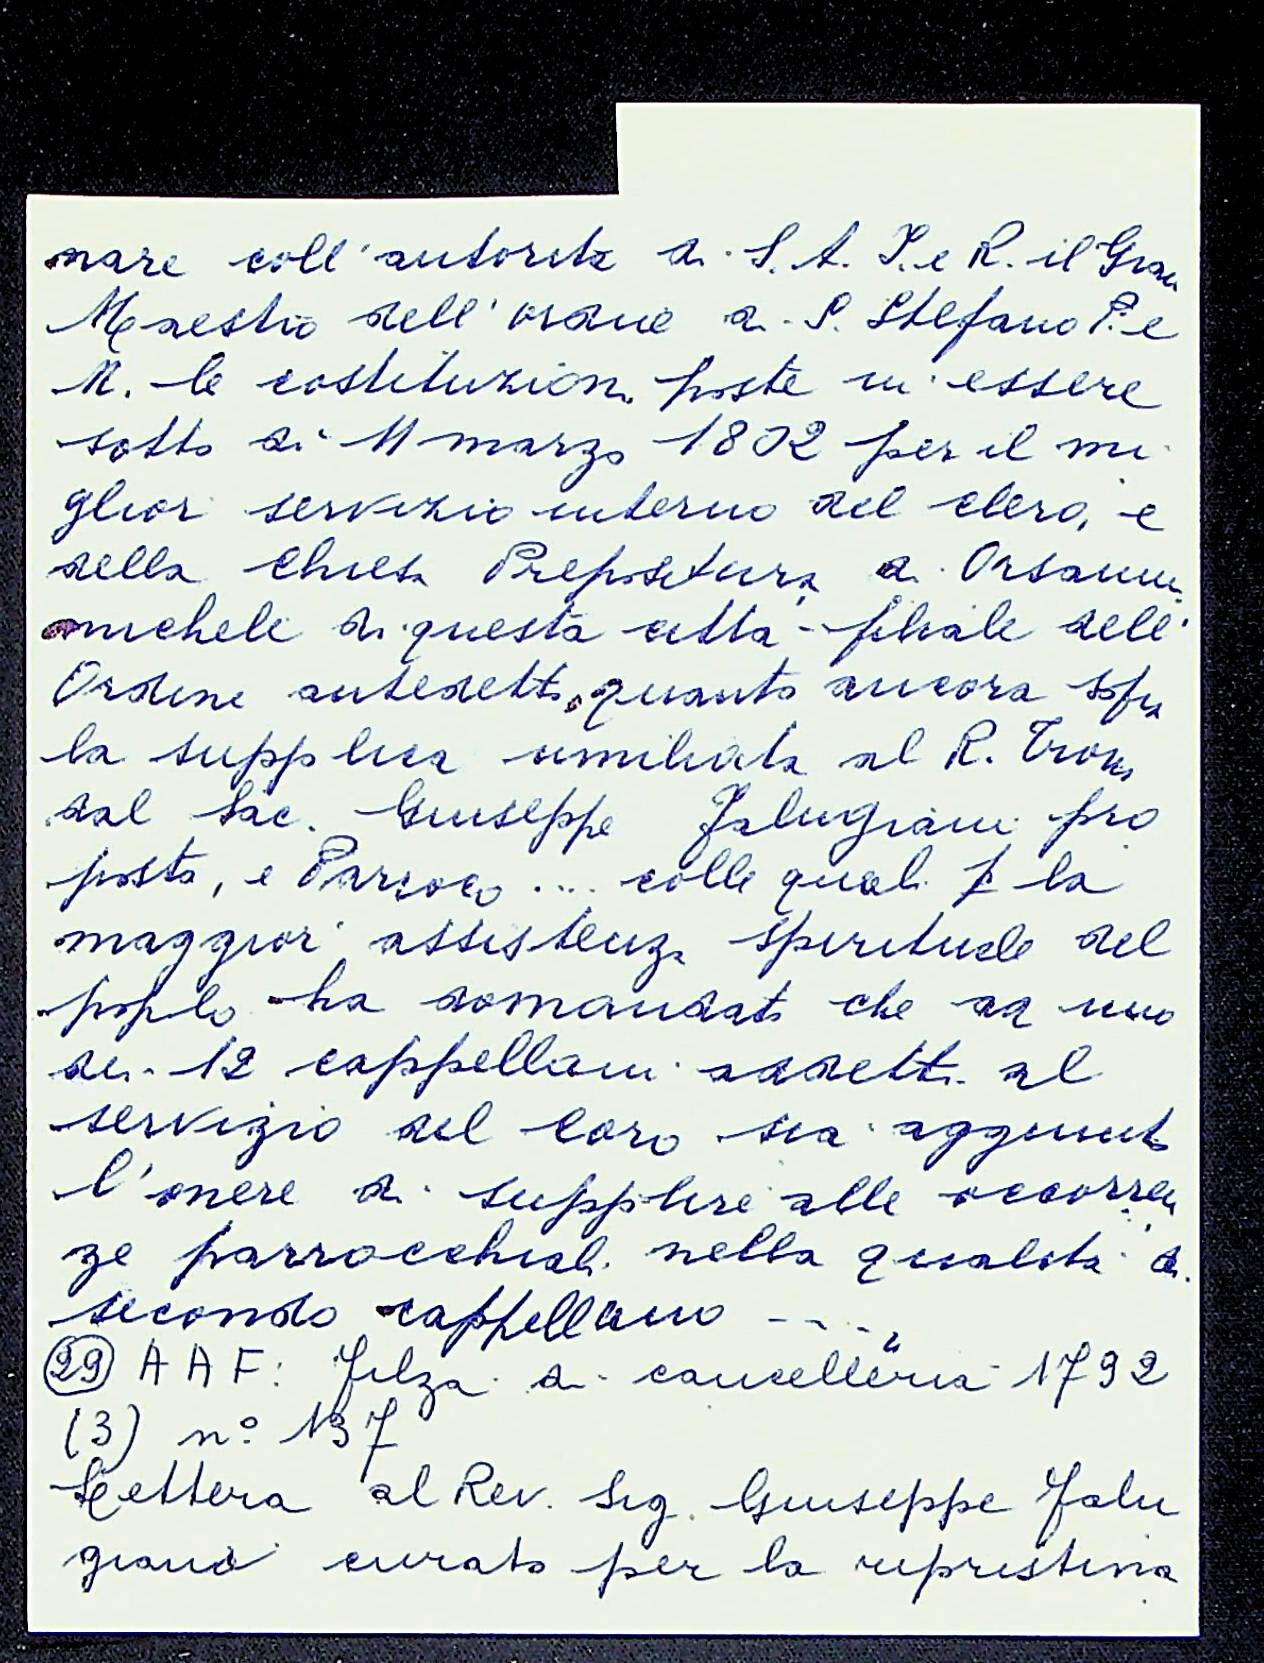 mare coll'autorità di S. A. I. e R. il Gran
Maestro dell'ordine di S. Stefano P. e
M. le costituzioni poste in essere
sotto di 11 marzo 1802 per il mi
glior servizio interno del clero, e
della Chiesa Prepositura di Orsanm
michele di questa città filiale dell'
Ordine antedetto, quanto ancora sopra
la supplica umiliata al R. Trono
dal Sac. Giuseppe Falugiani pro
posto, e Parroco .... colle quali p la
maggior assistenza spirituale del
popolo ha domandato che ad uno
dei 12 cappellani addetti al
servizio del Coro sia aggiunto
l'onere di supplire alle occorren
ze parrocchiali nella qualità di
secondo cappellano ---- "
(29) AAF: Filza di cancelleria 1792
(3) n° 137
Lettera al Rev. Sig. Giuseppe Falu
giani curato per la ripristina